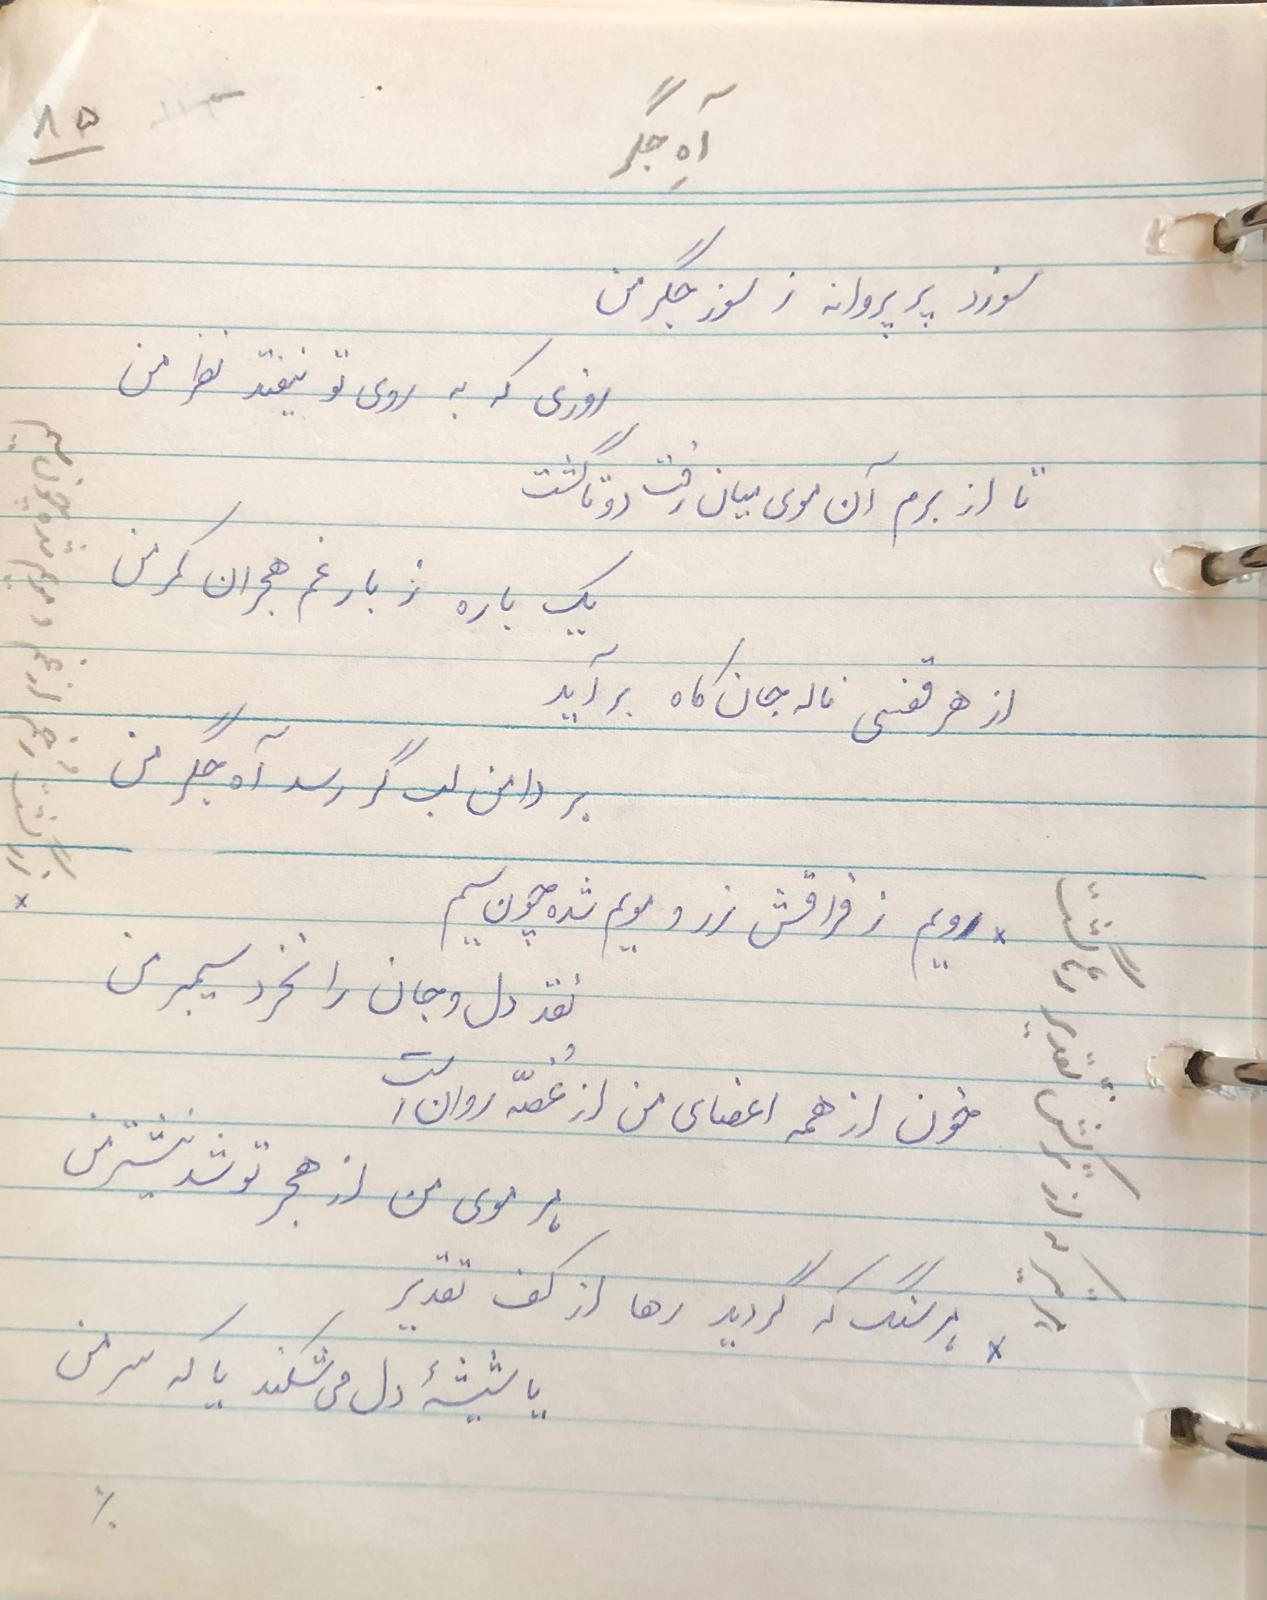 آهِ جگر
۸۵
سوزد پر پروانه ز سوز جگر من
روزی که به روی تو نیفتد نظر من
تا از برم آن موی میان رفت دوتا گشت
یک باره ز بار غم هجران کمر من
از هر قفسی ناله جان کاه بر آید
بر دامن لب گر رسد آه جگر من
× رویم ز فراقش زرد و مویم شده چون سیم
نقد دل و جان را نخرد سیمبر من
خون از همه اعضای من از غصّه روان است
هر موی من از هجر تو شد نیشتر من
× هر سنگ که گردید رها از کف تقدیر
یا شیشهٔ دل می‌شکند یا که سر من
× زر گشت رخم از غم و مویم شده چون سیم
هر تیر که از ترکش تقدیر رها گشت
٪